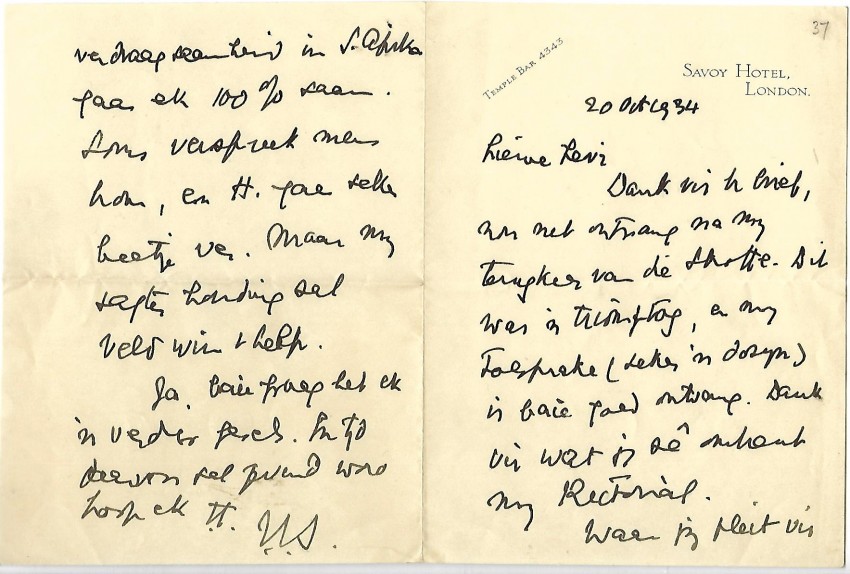 37
TEMPLE BAR 4343
SAVOY HOTEL,
LONDON.
20 Oct 1934
Liewe Levi
Dank vir u brief,
nou net ontvang na my
terugkeer van die Skotte. Dit
was 'n triomftog, en my
toesprake (seker 'n dosyn)
is baie goed ontvang. Dank
vir wat jy sê omtrent
my Rectorial.
Waar jy pleit vir
verdraagsaamheid in S. Afrika
gaan ek 100% saam.
Soms verspreek mens
hom, en H. gaan seker
beetje ver. Maar my
sagte houding sal
veld win & help.
Ja, baie graag het ek
'n verder gesels.
daarvoor sal word
hoop ek